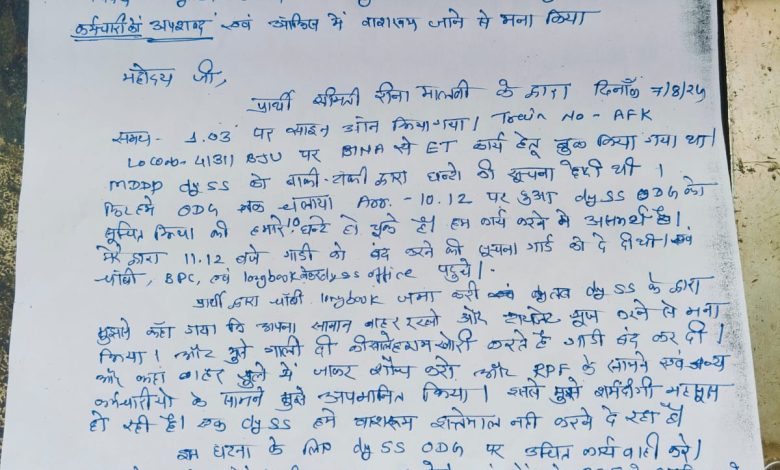 कर्मचारी को अपशब्द एवं ऑफिस में वाशरूम जाने से मना किया
महोदय जी,
प्रार्थी श्रीमती रीना मालवी के द्वारा दिनाँक 7/8/25
समय- 1.03 पर साइन ऑन किया गया। Train No - AFK
Loco no- 41311 BJU पर BINA से ET कार्य हेतु बुक किया गया था।
MDDP dy SS को वाकी-टाकी द्वारा घन्टो की सूचना दे दी थी ।
फिर हमे ODG तक चलाया Arr. - 10.12 पर हुआ dy SS ODG को
सूचित किया की हमारे 10 घन्टे हो चुके है। हम कार्य करने में असमर्थ है।
मेरे द्वारा 11.12 बजे गाडी को बंद करने की सूचना गार्ड को दे दी थी। एवं
चॉबी, BPC, एवं logbook लेकर dy ss office पहुचे।
प्रार्थी द्वारा चॉबी logbook जमा करी तब dy SS के द्वारा
मुझसे कहाँ गया कि अपना सामान बाहर रखो और टायलेट यूज करने से मना
किया। और मुझे गाली दी की हरामखोरी करते है गाडी बंद कर दी।
और कहां बाहर खुले में जाकर शौच करो और RPF के सामने एवं अन्य
कर्मचारीयो के सामने मुझे अपमानित किया। इससे मुझे शर्मंदगी महसूस
हो रही है। एक dy SS हमे वाशरूम इस्तेमाल नही करने दे रहा है।
इस घटना के लिए dy SS ODG पर उचित कार्यवाही करे।